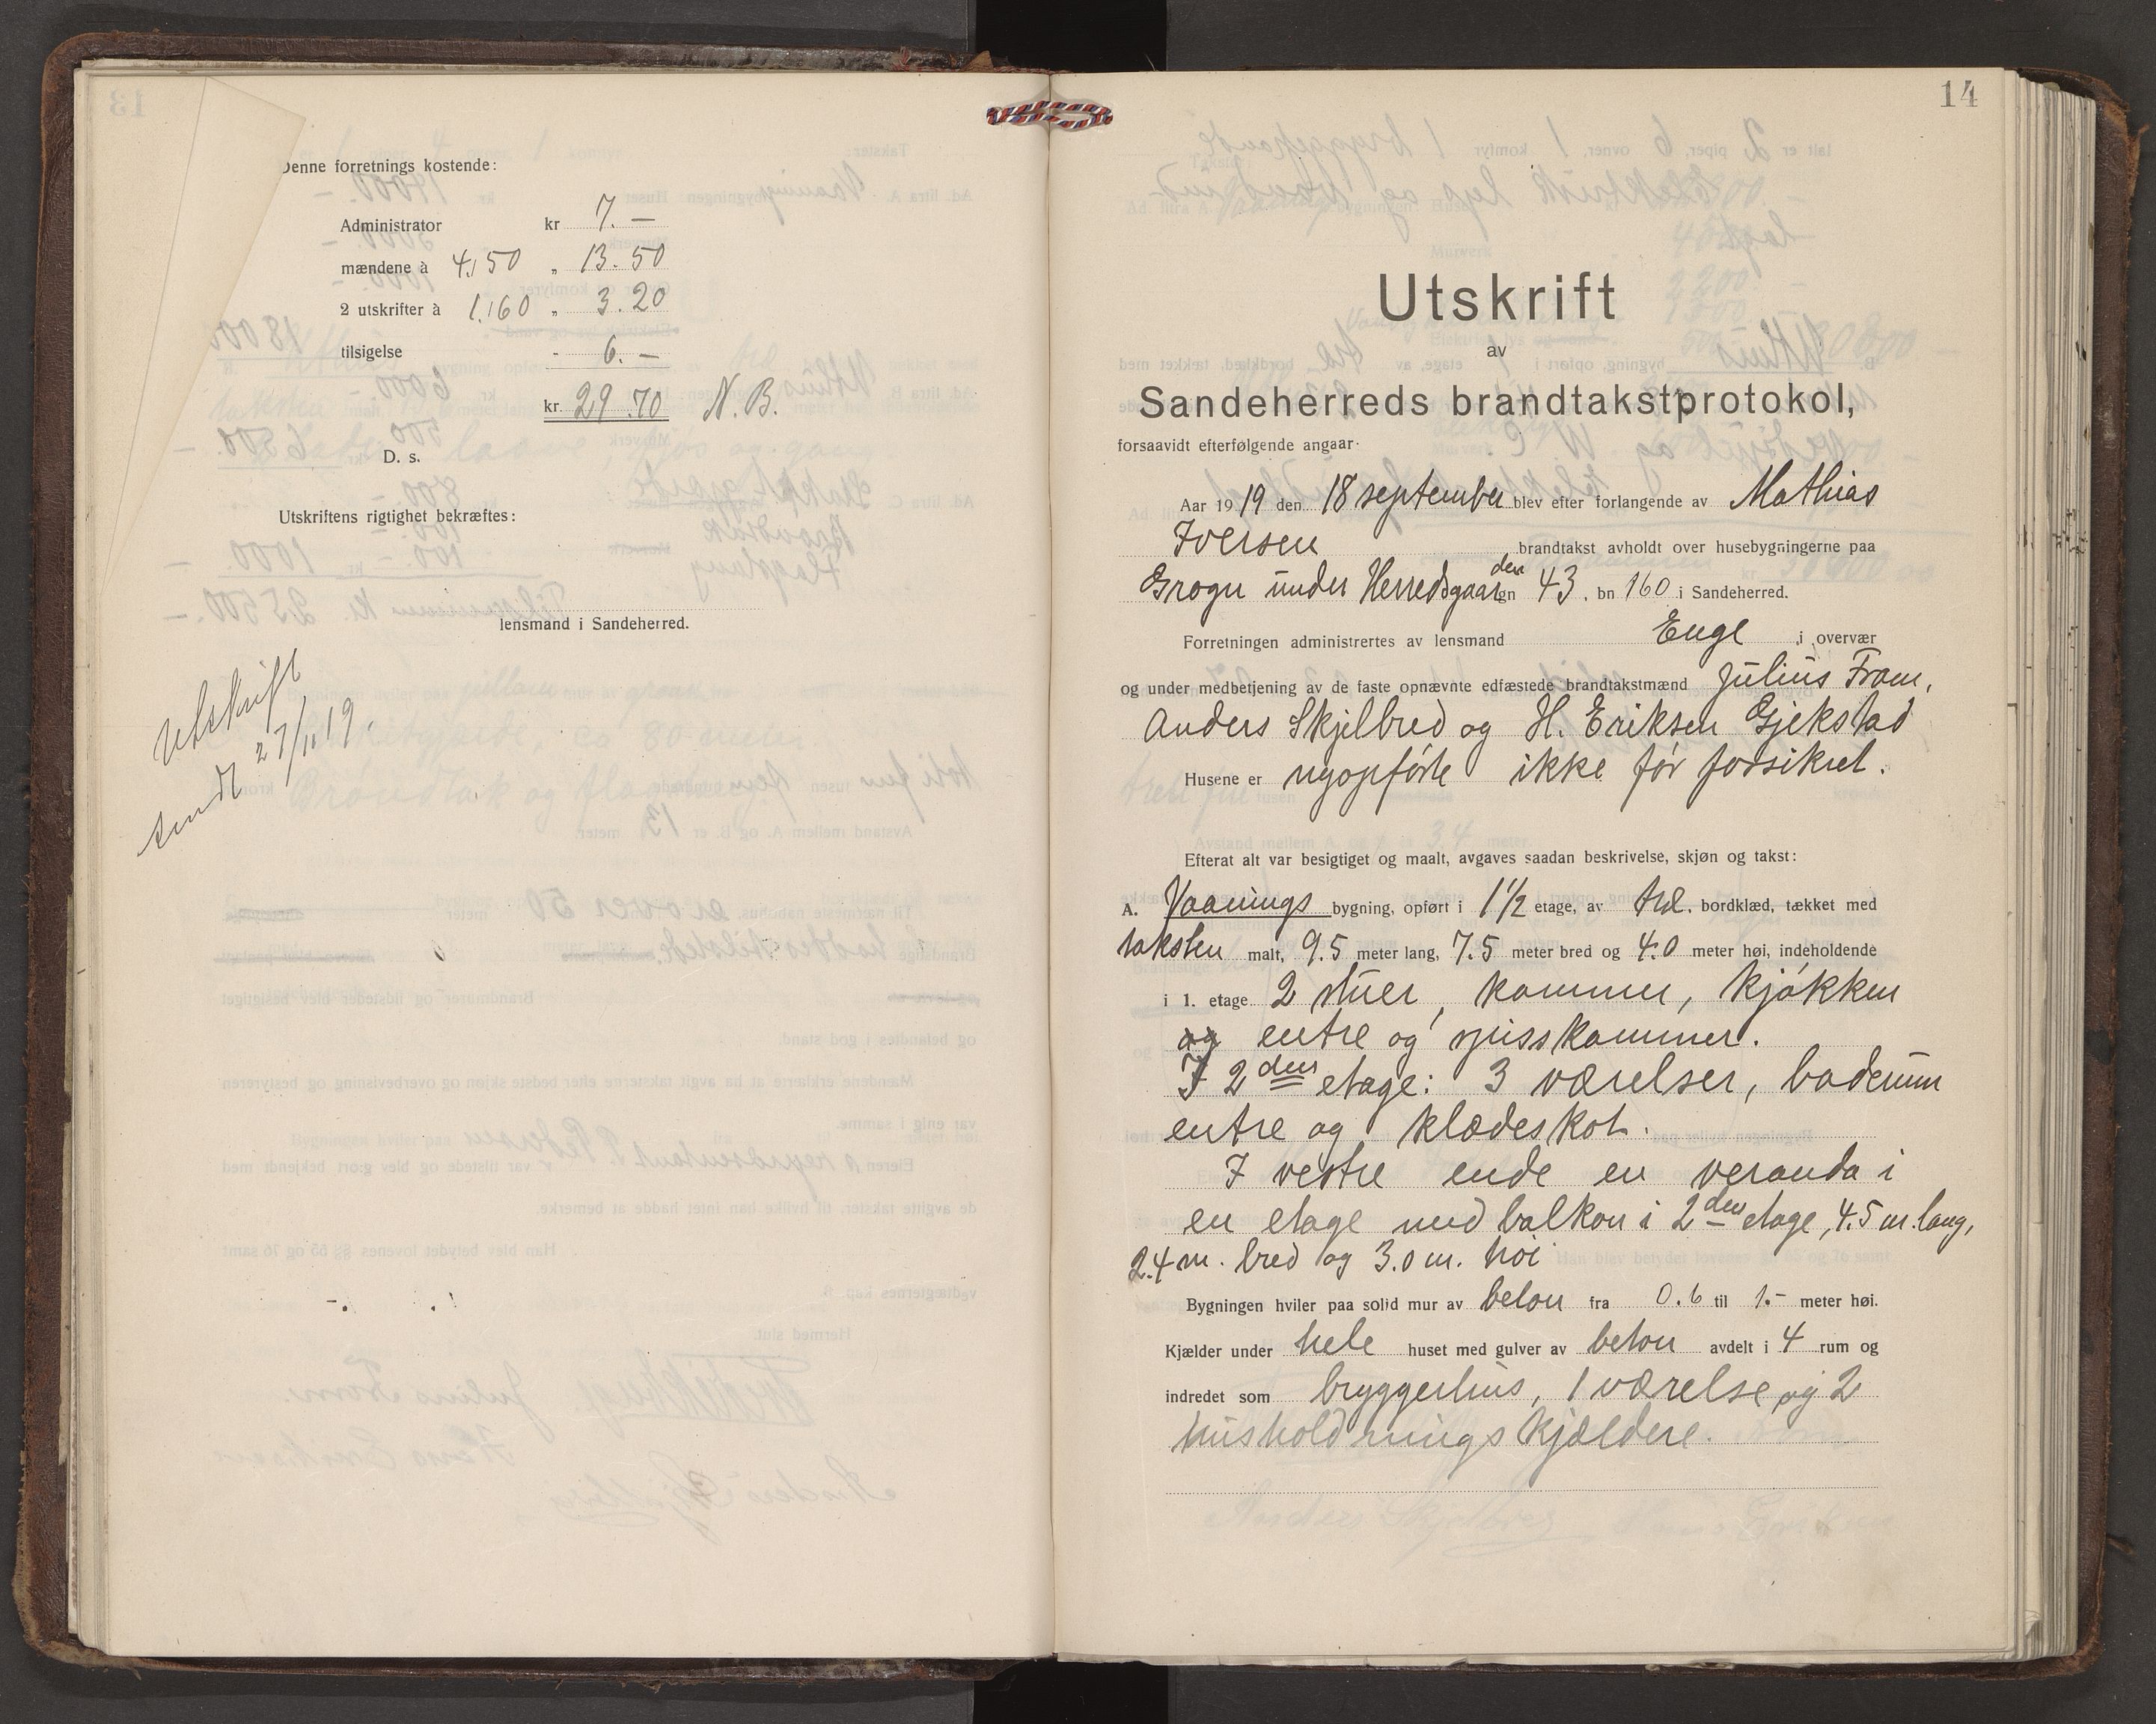 Denne forretnings kostende:
Administrator kr 7. —
mændene à 4.50 „ 13.50
2 utskrifter à 1.60 „ 3.20
tilsigelse - 6. —
kr. 29.70 N. B.
D. s.
Utskriftens rigtighet bekræftes:
lensmand i Sandeherred.
Utskrift
sendt 27/11 19.
14
Utskrift
av
Sandeherreds brandtakstprotokol,
forsaavidt efterfølgende angaar.
Aar 1919 den 18 september blev efter forlangende av Mathias
Iversen brandtakst avholdt over husebygningerne paa
Grogn under Herredsgaarden gn 43, bn 160 i Sandeherred.
Forretningen administrertes av lensmand Enge i overvær
og under medbetjening av de faste opnævnte edfæstede brandtakstmænd Julius Fram,
Anders Skjelbred og H. Eriksen Gjekstad
Husene er nyopførte ikke før forsikret.
Efterat alt var besigtiget og maalt, avgaves saadan beskrivelse, skjøn og takst:
A. Vaanings bygning, opført i 1½ etage, av træ. bordklæd, tækket med
taksten malt, 9.5 meter lang, 7.5 meter bred og 4.0 meter høi, indeholdende
i 1. etage 2 stuer, kammer, kjøkken
og entre og spisskammer.
I 2den etage: 3 værelser, baderum
entre og klædeskot.
I vestre ende en veranda i
en etage med balkon i 2den etage, 4.5 m. lang,
2.4 m. bred og 3.0 m. høi
Bygningen hviler paa solid mur av beton fra 0.6 til 1.- meter høi.
Kjælder under hele huset med gulver av beton avdelt i 4 rum og
indredet som bryggerhus, 1 værelse og 2
husholdningskjældere.